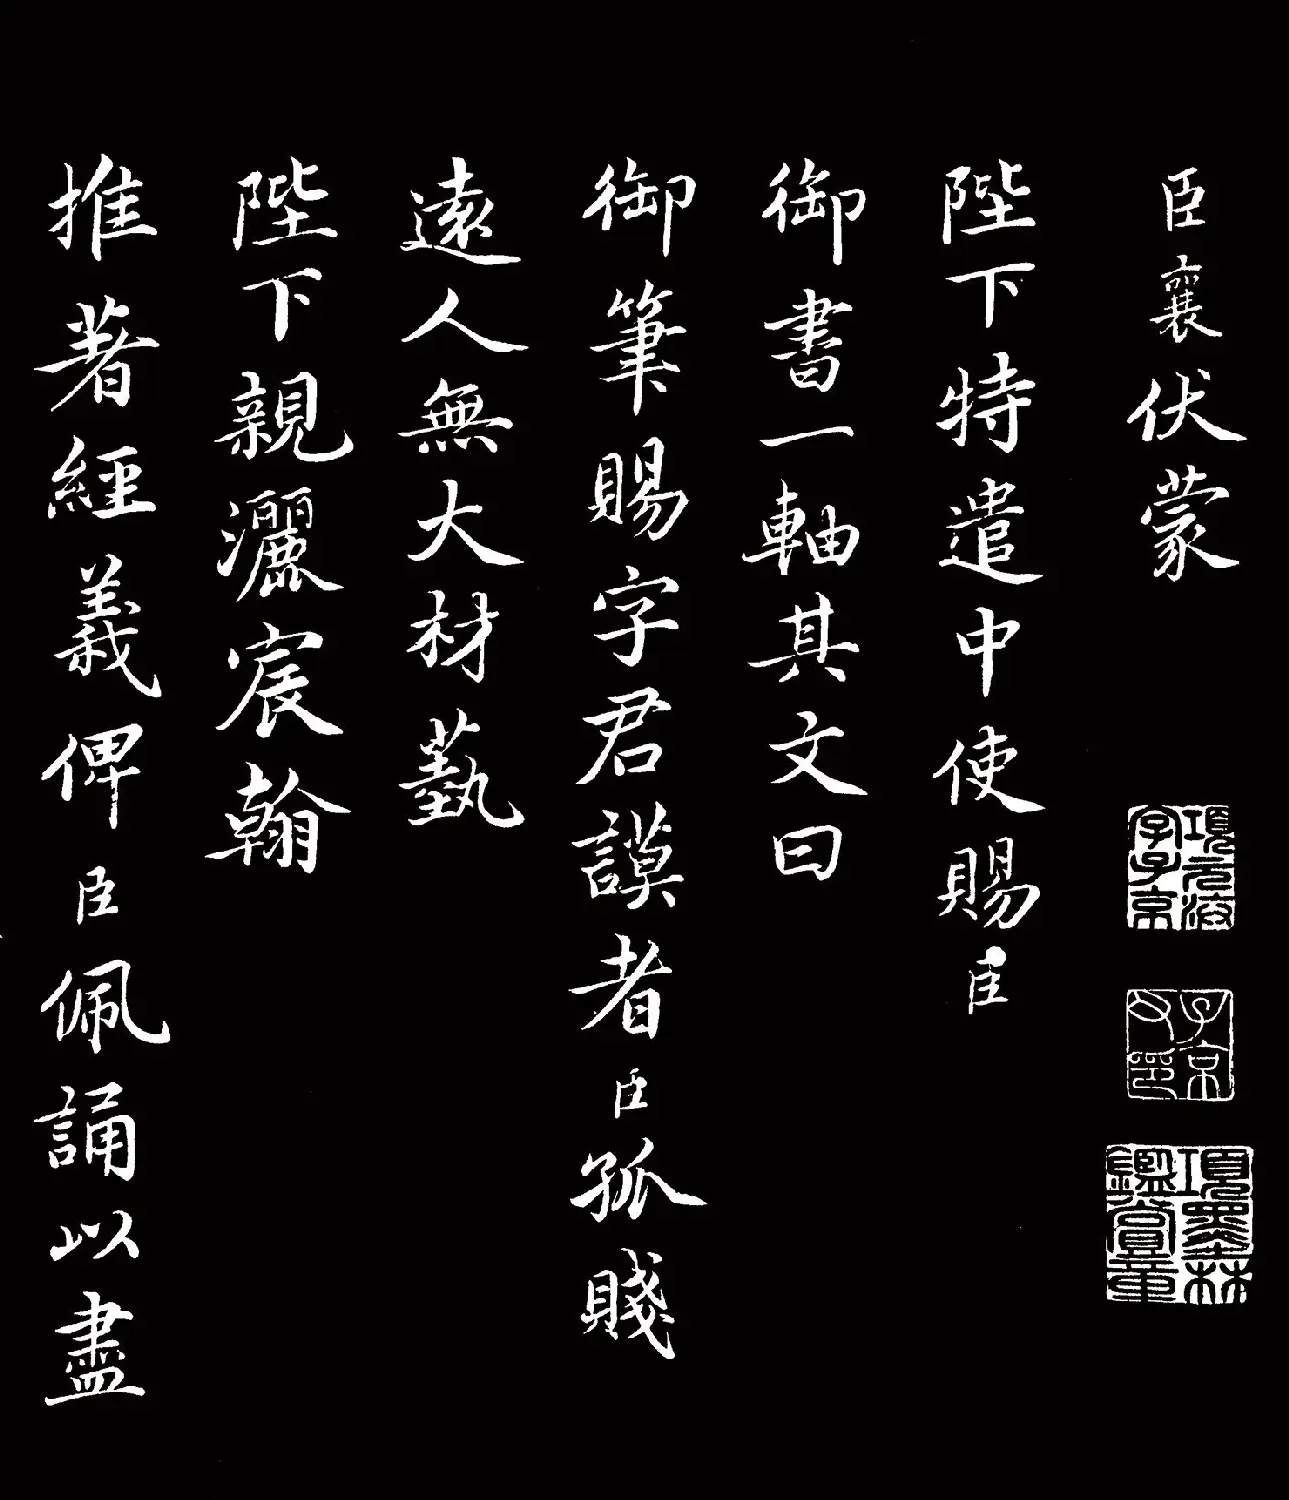 臣襄伏蒙
陛下特遣中使賜臣
御書一軸其文曰
御筆賜字君謨者臣孤賤
遠人無大材藝
陛下親灑宸翰
推著經義俾臣佩誦以盡
項元汴字子京
子京父印
項墨林鑑賞章